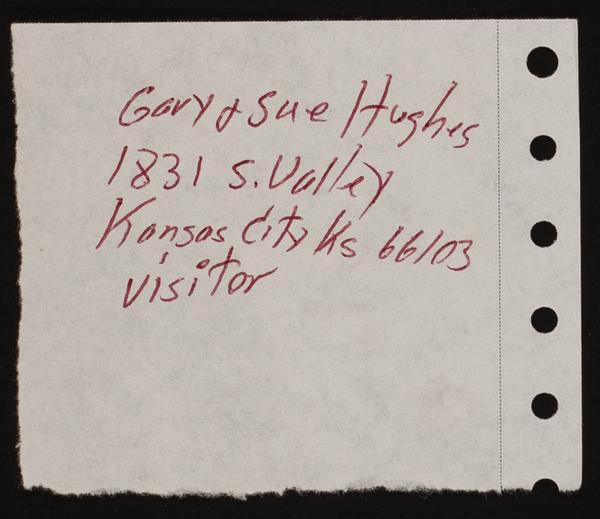 Gary & Sue Hughes
1831 S. Valley
Kansas City Ks 66103
visitor